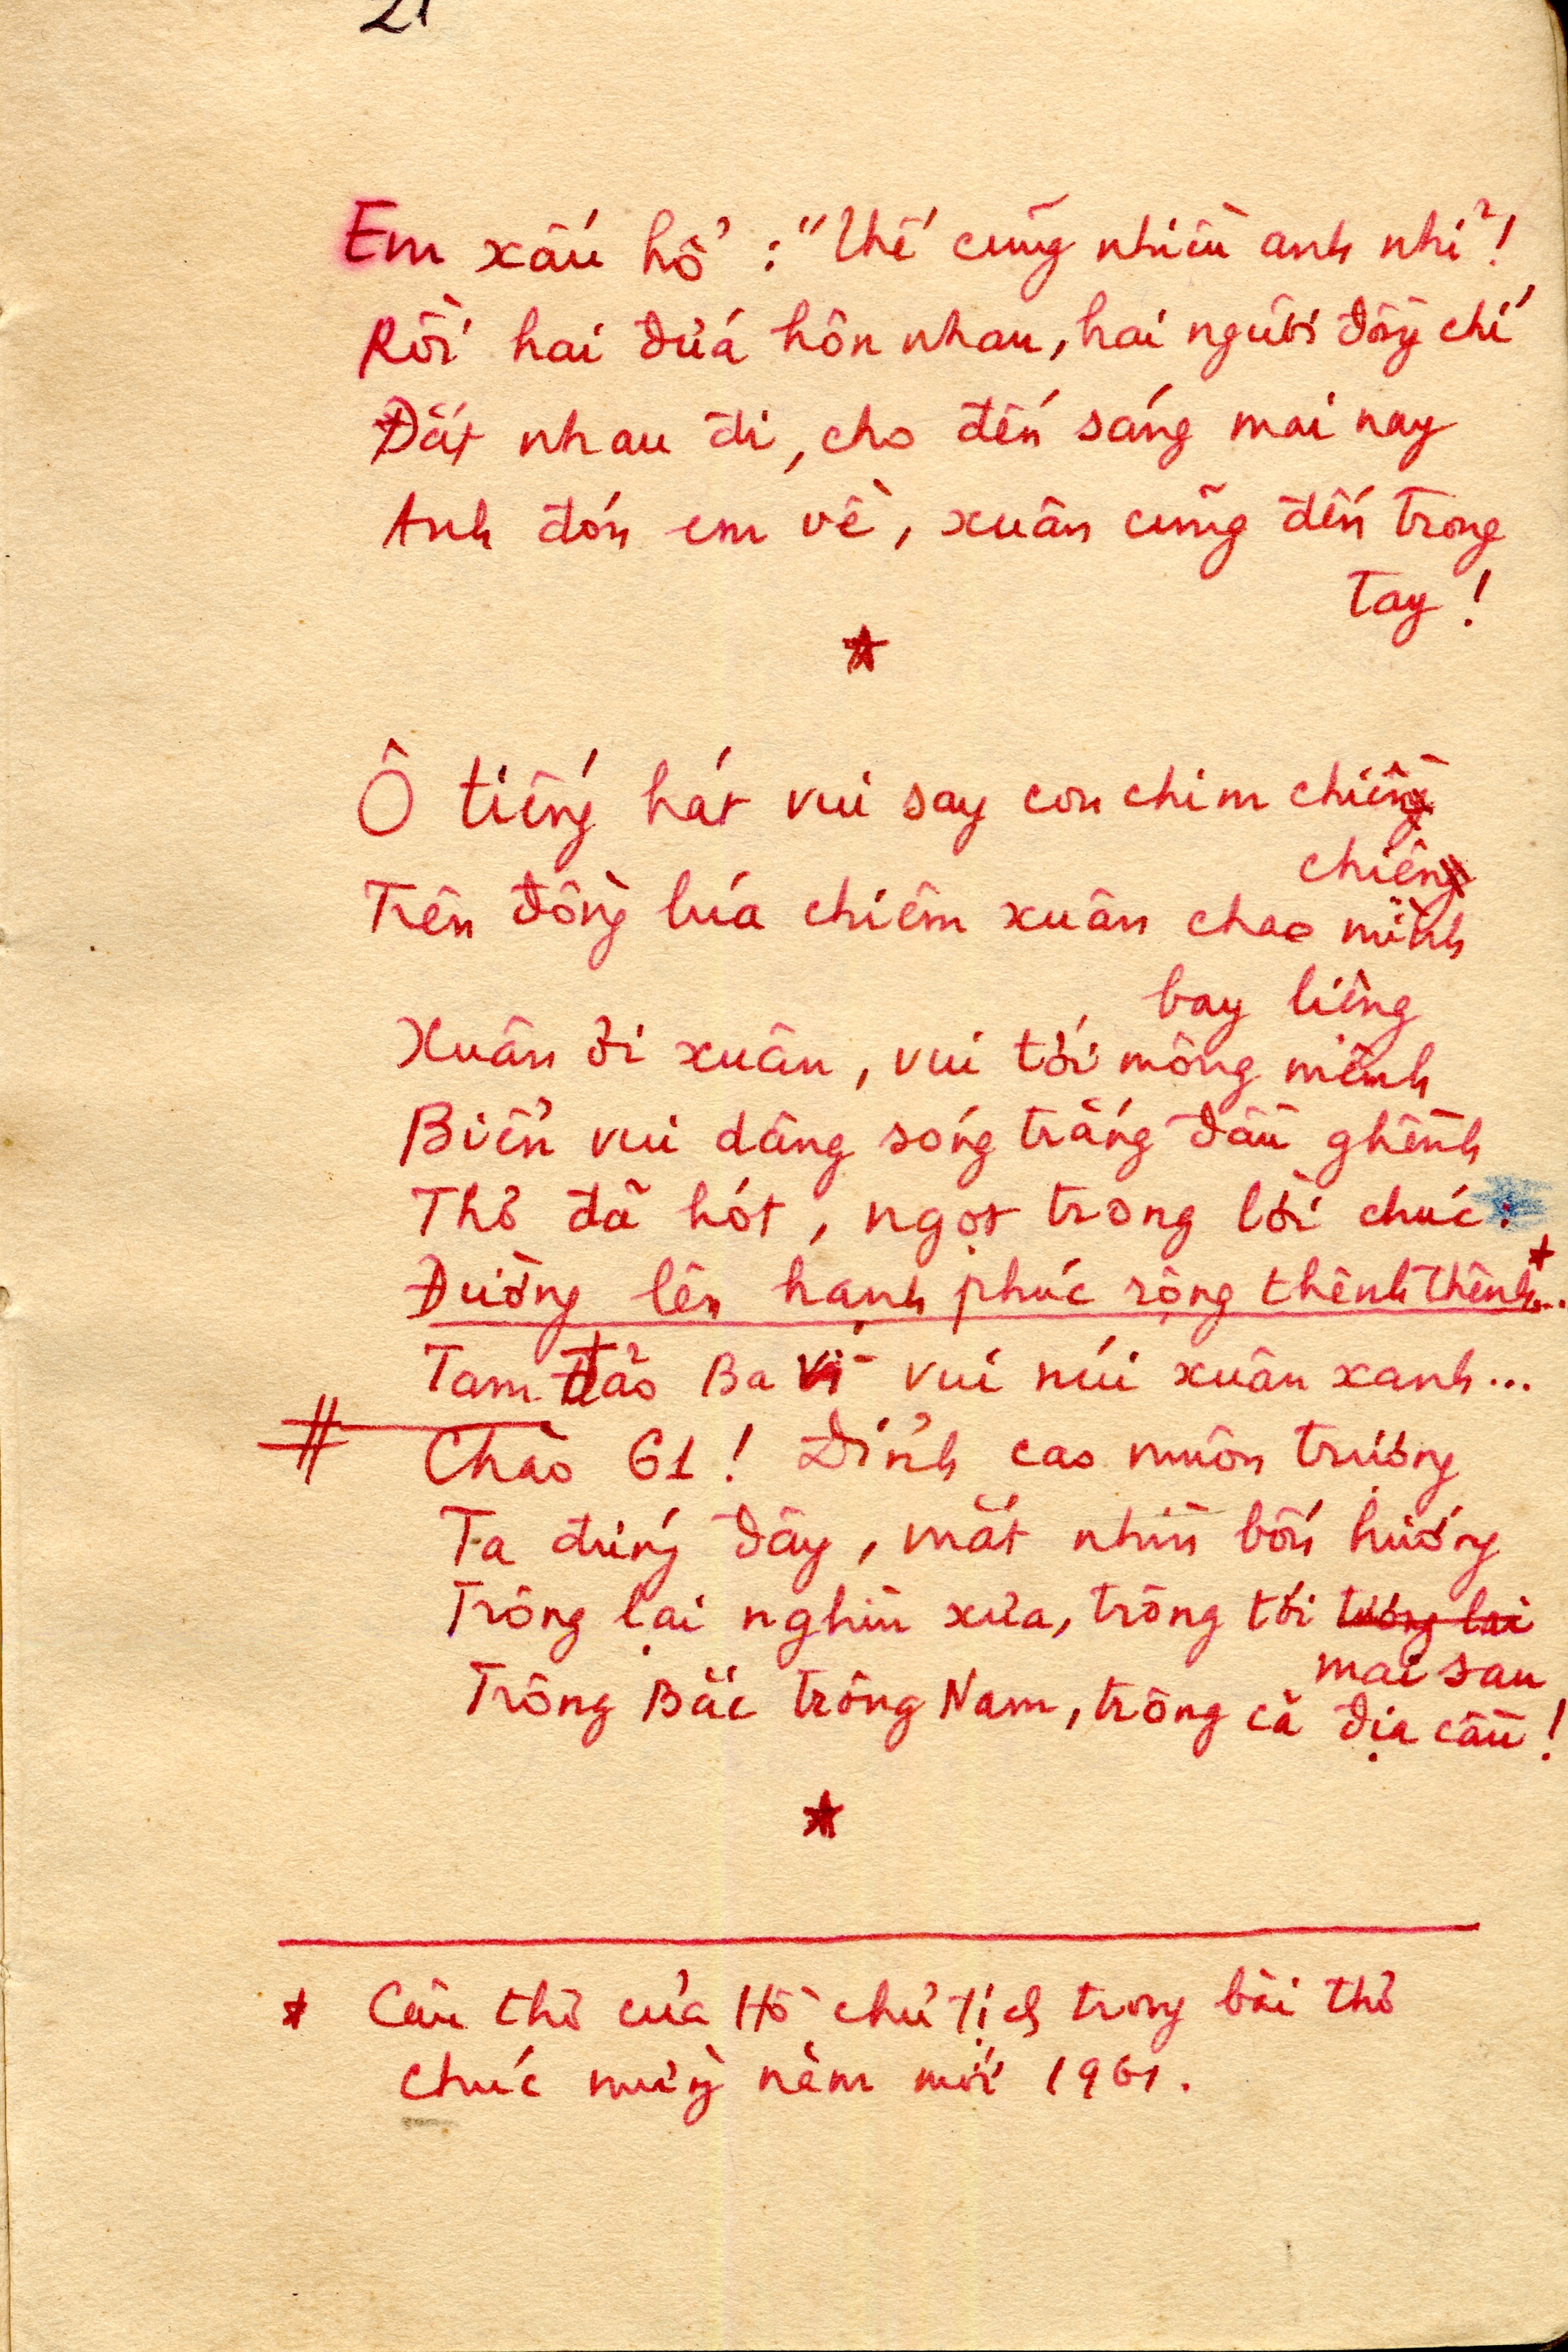 21
Em xấu hổ : "Thế cũng nhiều anh nhỉ"!
Rồi hai đứa hôn nhau, hai người đồng chí
Đắt nhau đi, cho đến sáng mai nay
Anh đón em về, xuân cũng đến trong
tay !
Ô tiếng hát vui say con chim chiền
chiện
Trên đồng lúa chiêm xuân chao mình
bay liệng
Xuân ơi xuân, vui tới mông mênh
Biển vui dâng sóng trắng đầu ghềnh
Thơ đã hót, ngọt trong lời chúc:
Đường lên hạnh phúc rộng thênh thênh*...
Tam Đảo Ba Vì vui núi xuân xanh...
# Chào 61 ! Đỉnh cao muôn trượng
Ta đứng đây, mắt nhìn bốn hướng
Trông lại nghìn xưa, trông tới tương lai
mai sau
Trông Bắc trông Nam, trông cả địa cầu !
* Câu thơ của Hồ chủ tịch trong bài thơ
chúc mừng năm mới 1961.